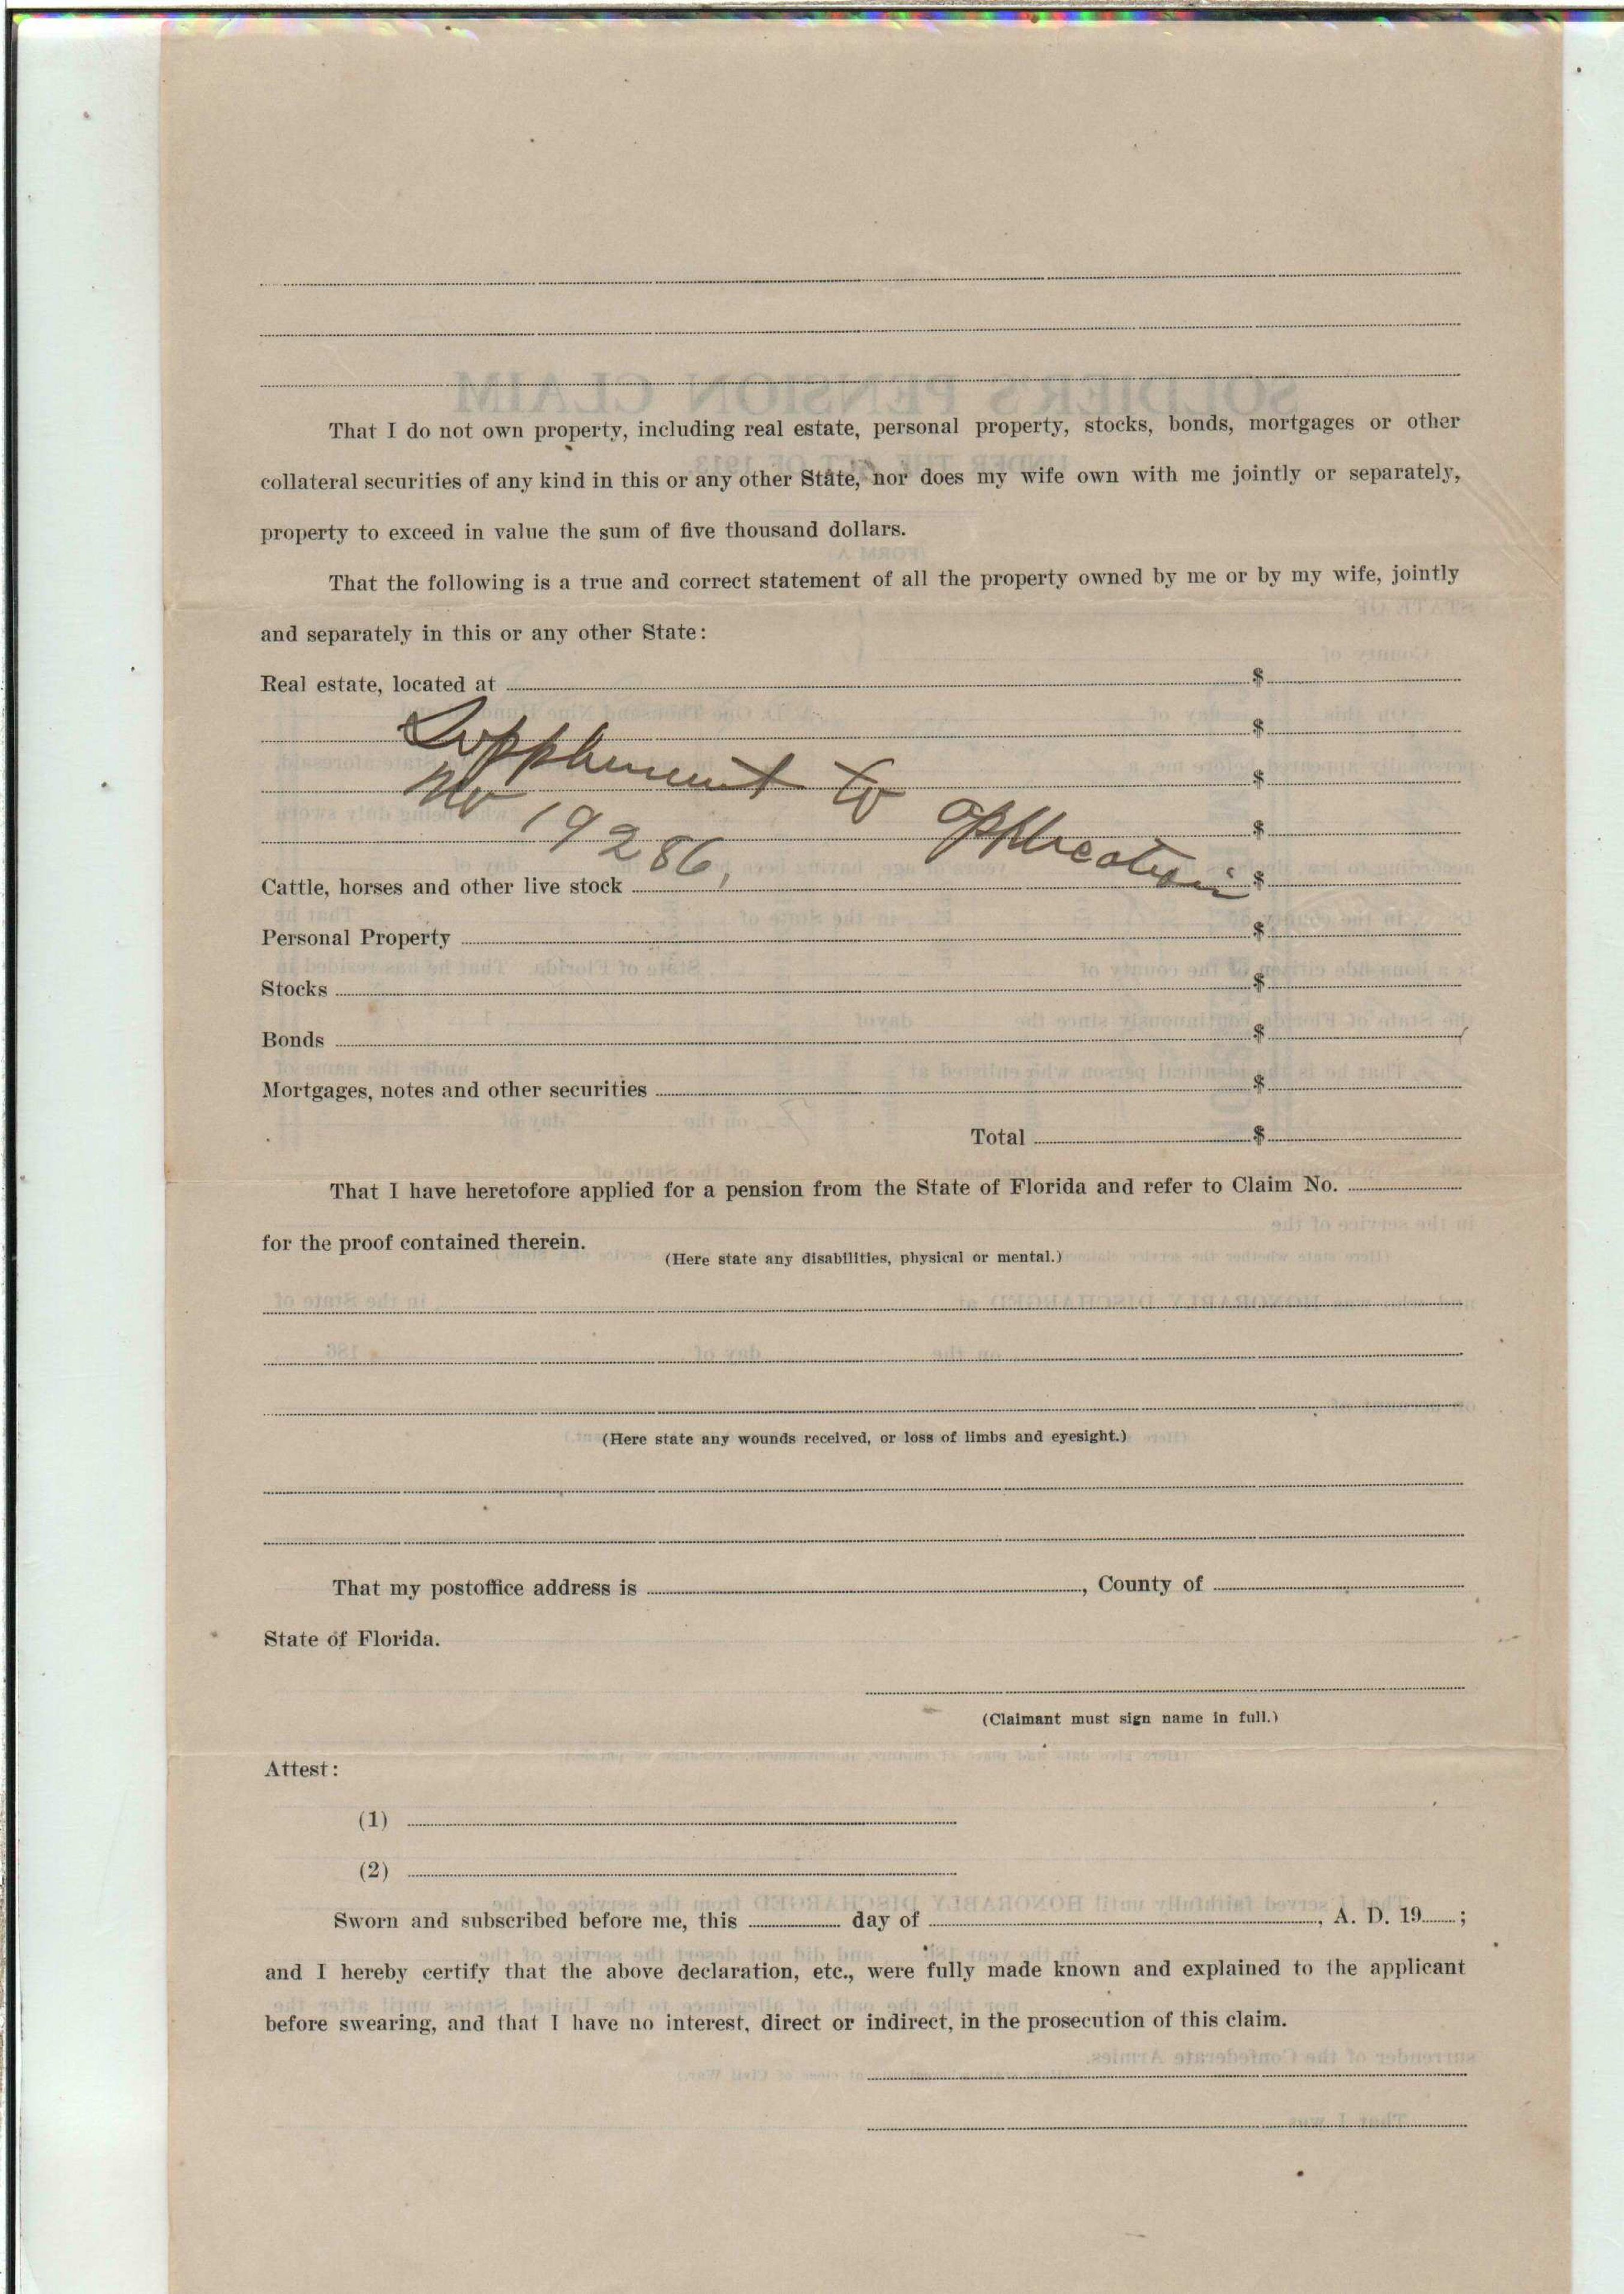 That I do not own property, including real estate, personal property, stocks, bonds, mortgages or other
collateral securities of any kind in this or any other State, nor does my wife own with me jointly or separately,
property to exceed in value the sum of five thousand dollars.
That the following is a true and correct statement of all the property owned by me or by my wife, jointly
and separately in this or any other State:
Real estate, located at $
$
Supplement to Application $
No 19286, $
Cattle, horses and other live stock $
Personal Property $
Stocks $
Bonds $
Mortgages, notes and other securities $
Total $
That I have heretofore applied for a pension from the State of Florida and refer to Claim No.
for the proof contained therein.
(Here state any disabilities, physical or mental.)
(Here state any wounds received, or loss of limbs and eyesight.)
That my postoffice address is , County of
State of Florida.
(Claimant must sign name in full.)
Attest:
(1)
(2)
Sworn and subscribed before me, this day of , A. D. 19 ;
and I hereby certify that the above declaration, etc., were fully made known and explained to the applicant
before swearing, and that I have no interest, direct or indirect, in the prosecution of this claim.